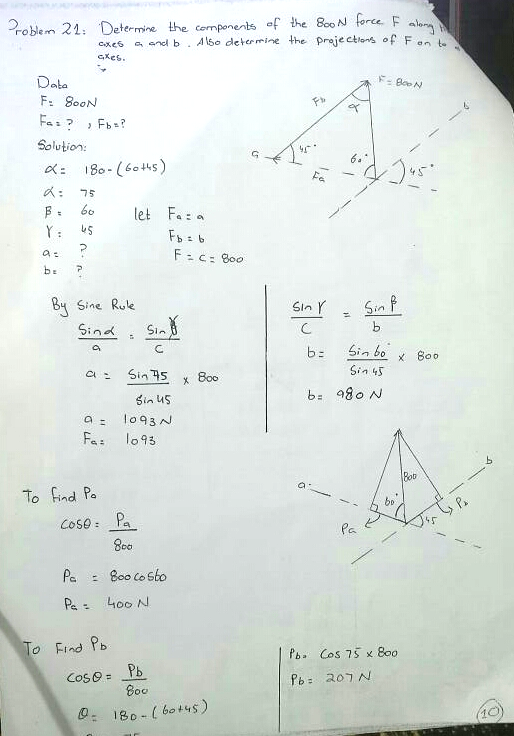 Problem 21: Determine the components of the 800N force F along
axes a and b. Also determine the projections of F on to
axes.
Data
F= 800N
Fa= ? , Fb=?
Solution:
α= 180-(60+45)
α= 75
β= 60
γ= 45
a= ?
b= ?
let Fa = a
Fb = b
F = c = 800
F=800N
Fb
α
a
45°
60°
Fa
45°
b
By Sine Rule
Sinα = Sinγ
a c
a = Sin 75 × 800
Sin 45
a = 1093 N
Fa= 1093
Sin γ = Sin β
c b
b= Sin 60 × 800
Sin 45
b= 980 N
a
800
b
60°
45
Pa
Pb
To find Pa
cosθ= Pa
800
Pa = 800cos60
Pa = 400 N
To Find Pb
cosθ= Pb
800
θ= 180-(60+45)
Pb= Cos 75 × 800
Pb= 207 N
10